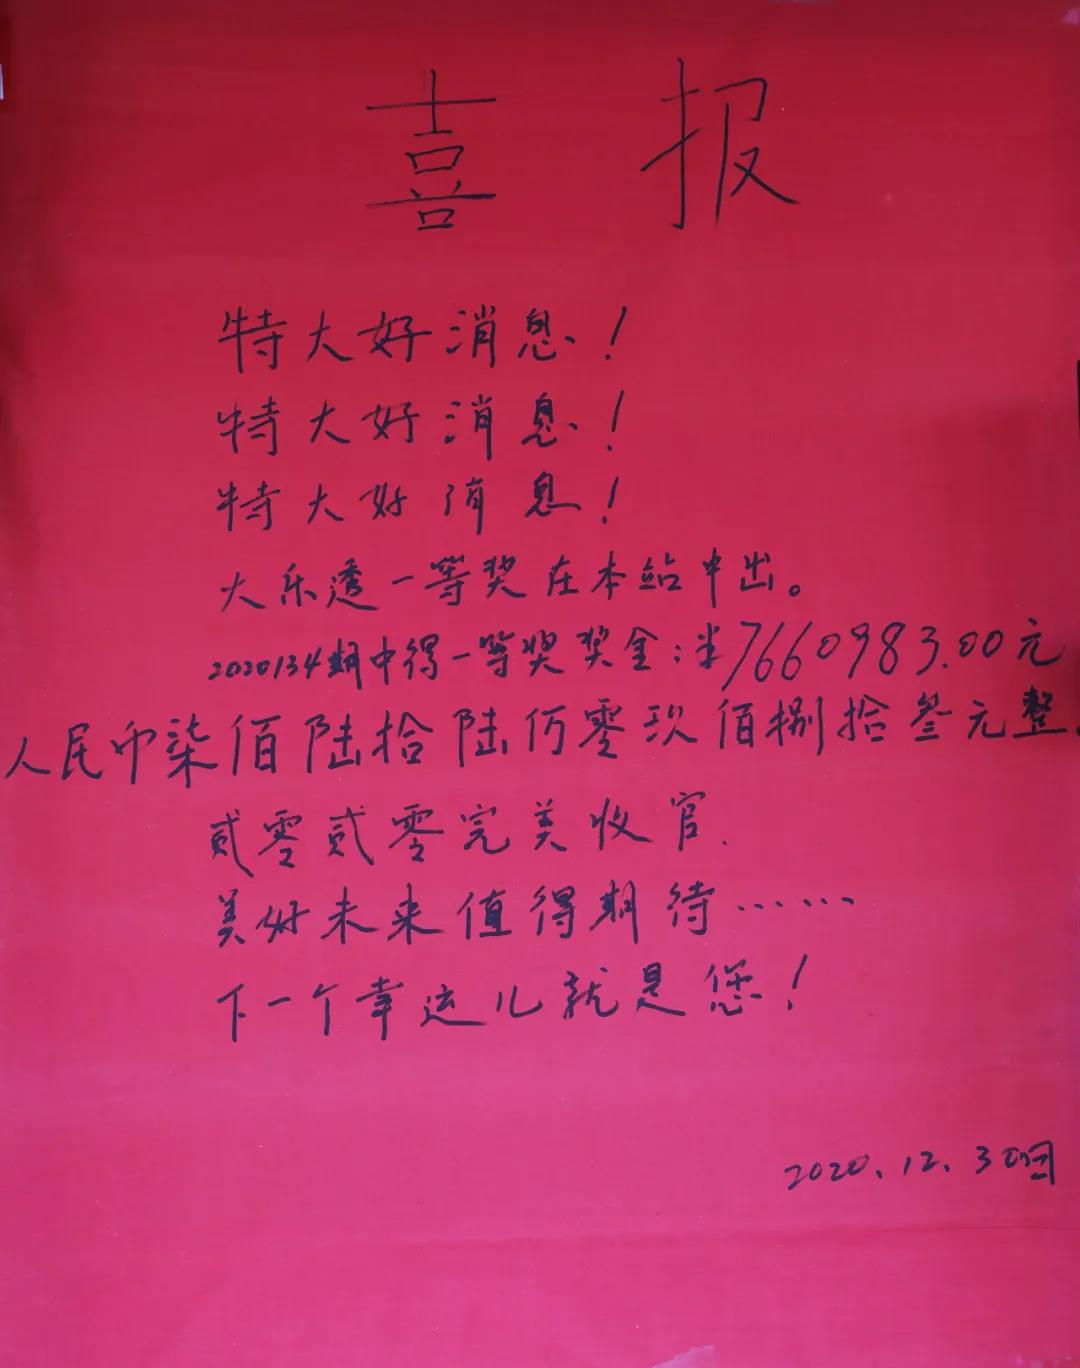 喜报
特大好消息！
特大好消息！
特大好消息！
大乐透一等奖在本站中出。
2020134期中得一等奖奖金：¥7660983.00元
人民币柒佰陆拾陆仟零玖佰捌拾叁元整。
贰零贰零完美收官.
美好未来值得期待……
下一个幸运儿就是您！
2020.12.30日